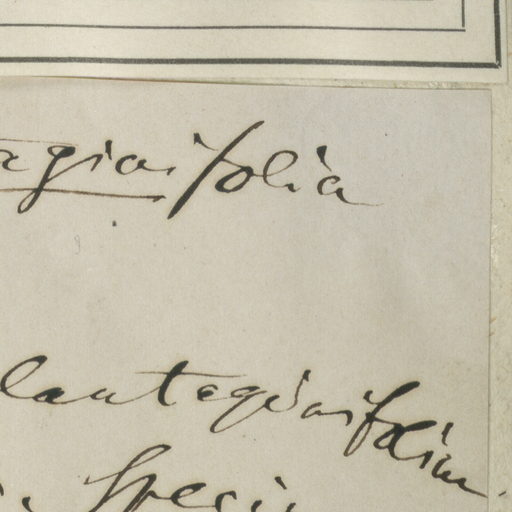 agiaifolia
lantagiaifolia
Specis